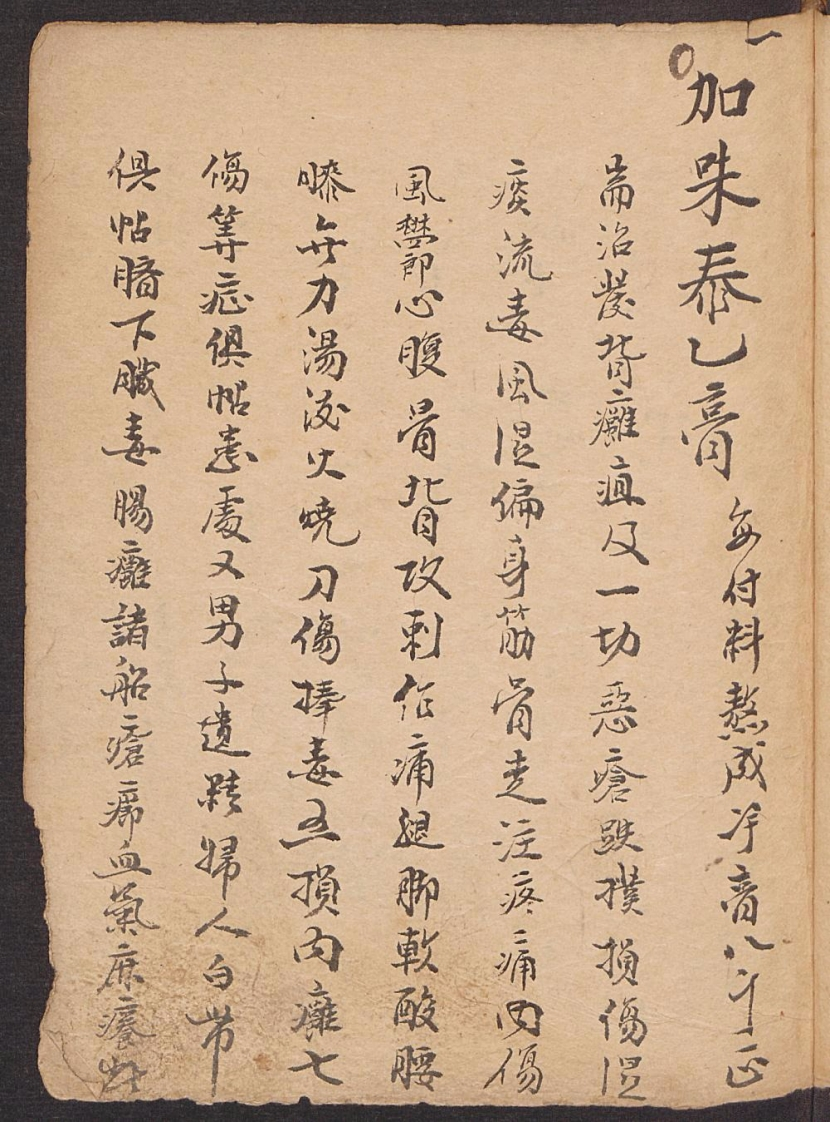 加味泰乙膏 每付料熬成净膏八斤正
耑治發背癰疽及一切惡瘡跌撲損傷湿
痰流毒風湿偏身筋骨走注疼痛内傷
風欝節心腹胃背攻刺作痛腿脚軟酸腰
膝無力湯泼火燒刀傷捧毒五損内癰七
傷等症俱帖患處又男子遺精婦人白帶
俱帖臍下臟毒腸癰諸般瘡癤血氣麻癢